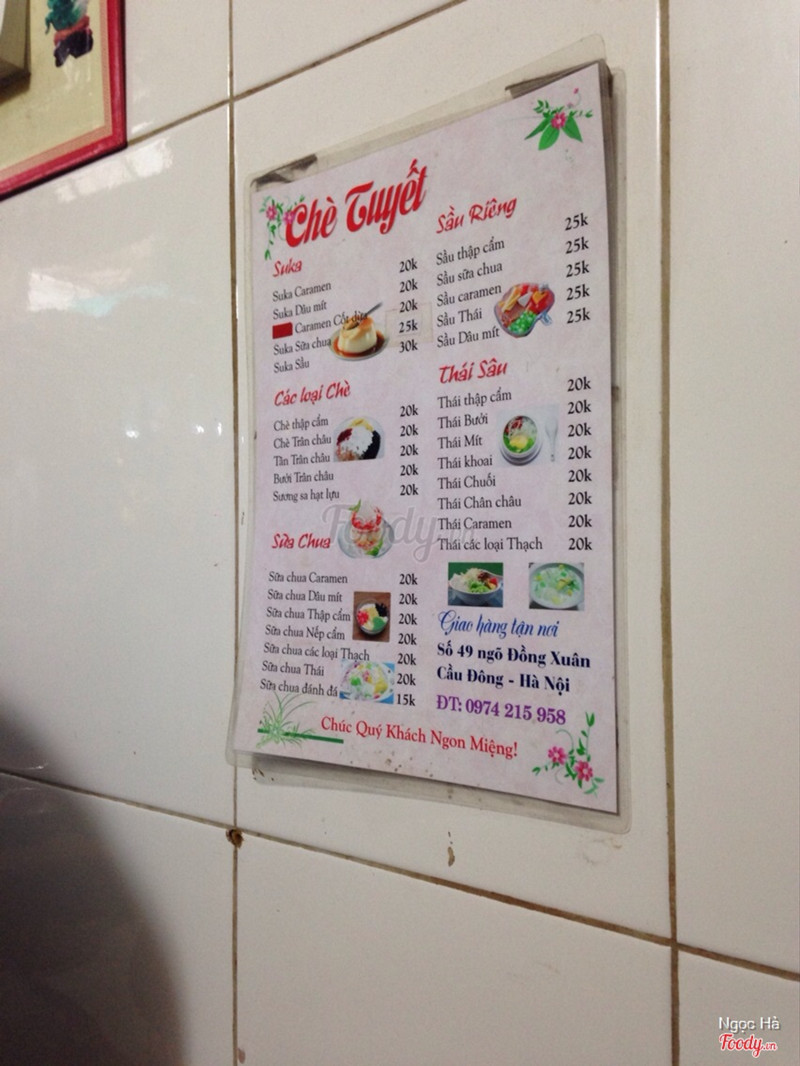 Chè Tuyết
Suka
Suka Caramen 20k
Suka Dâu mít 20k
Caramen Cốt dừa 20k
Suka Sữa chua 25k
Suka Sầu 30k
Các loại Chè
Chè thập cẩm 20k
Chè Trân châu 20k
Tân Trân châu 20k
Bưởi Trân châu 20k
Sương sa hạt lựu 20k
Sữa Chua
Sữa chua Caramen 20k
Sữa chua Dâu mít 20k
Sữa chua Thập cẩm 20k
Sữa chua Nếp cẩm 20k
Sữa chua các loại Thạch 20k
Sữa chua Thái 20k
Sữa chua đánh đá 15k
Sầu Riêng
Sầu thập cẩm 25k
Sầu sữa chua 25k
Sầu caramen 25k
Sầu Thái 25k
Sầu Dâu mít 25k
Thái Sâu
Thái thập cẩm 20k
Thái Bưởi 20k
Thái Mít 20k
Thái khoai 20k
Thái Chuối 20k
Thái Chân châu 20k
Thái Caramen 20k
Thái các loại Thạch 20k
Giao hàng tận nơi
Số 49 ngõ Đồng Xuân
Cầu Đông - Hà Nội
ĐT: 0974 215 958
Chúc Quý Khách Ngon Miệng!
Foody.vn
Ngọc Hà
Foody.vn